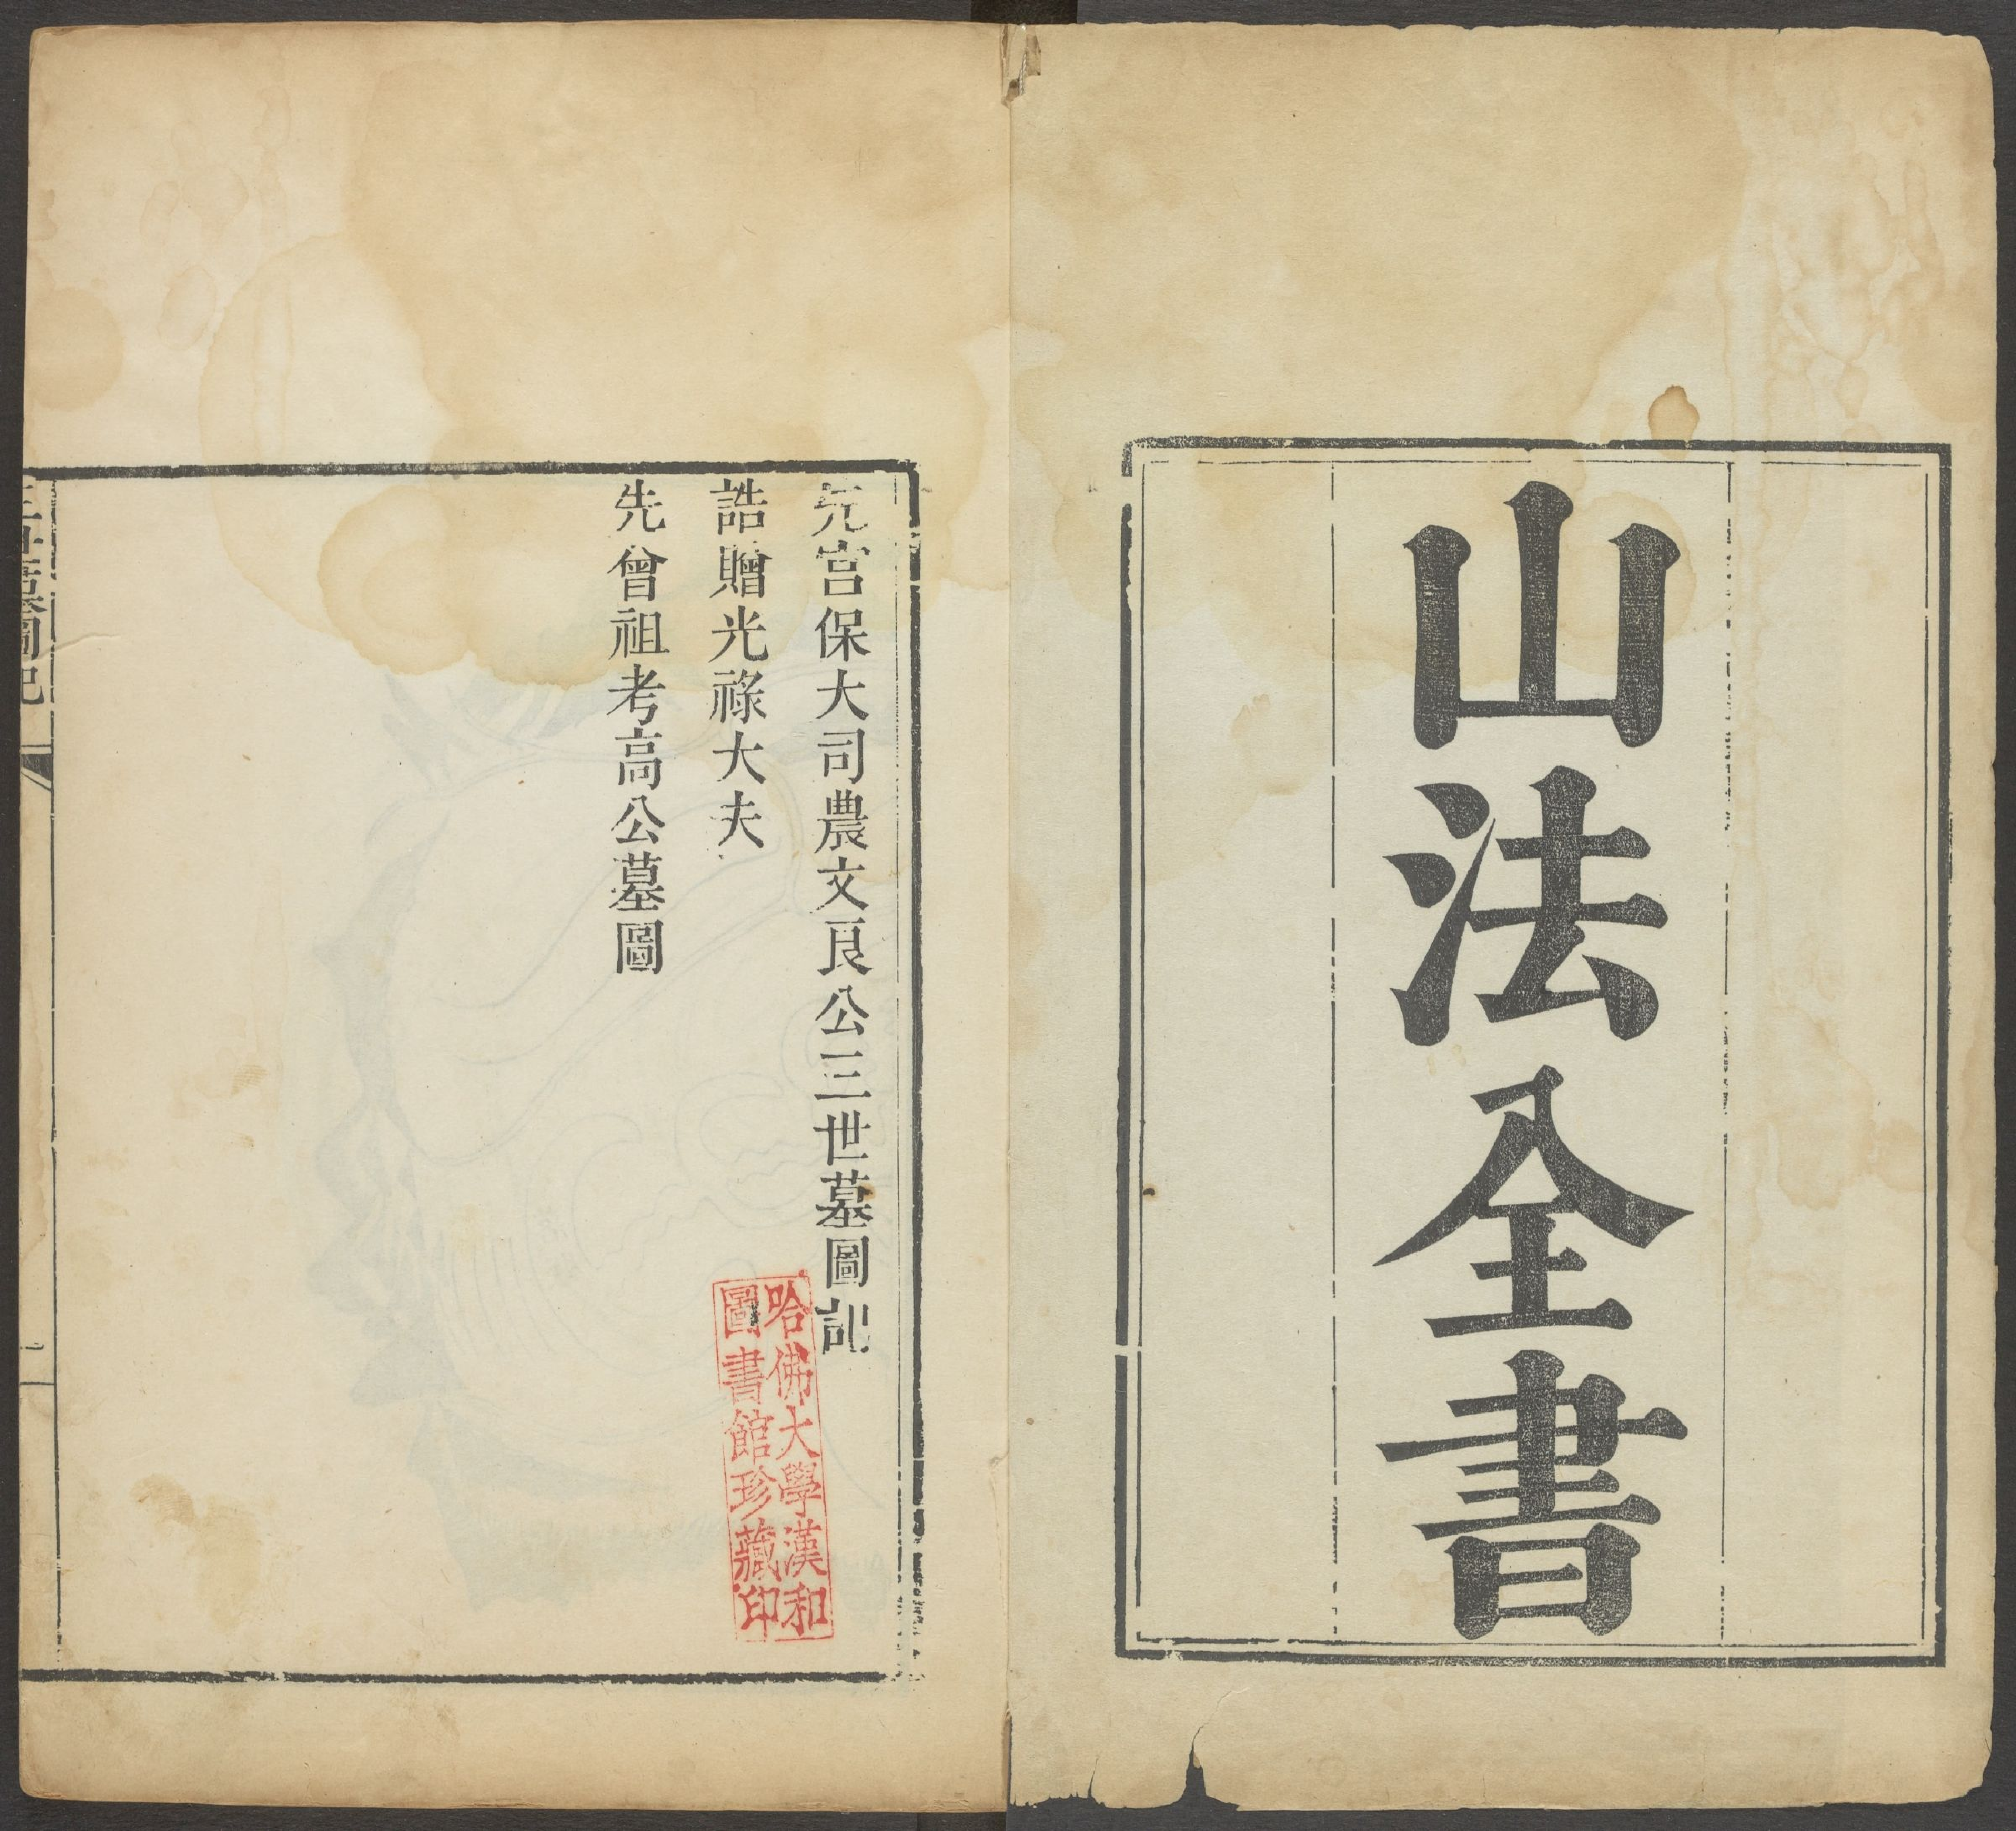 山法全書
元宮保大司農文良公三世墓圖記
誥贈光祿大夫
先曾祖考高公墓圖
哈佛大學漢和
圖書館珍藏印
三世墓圖記